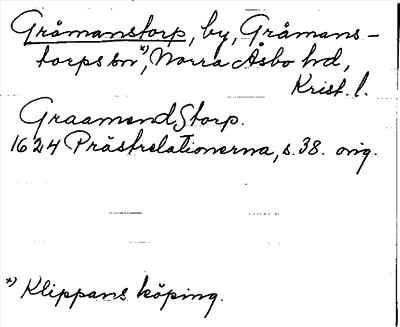 Gråmanstorp, by, Gråmans-
torps sn *), Norra Åsbo hd,
Krist. l.
Graamend Storp.
1624 Prästrelationerna, s. 38. orig.
*) Klippans köping.